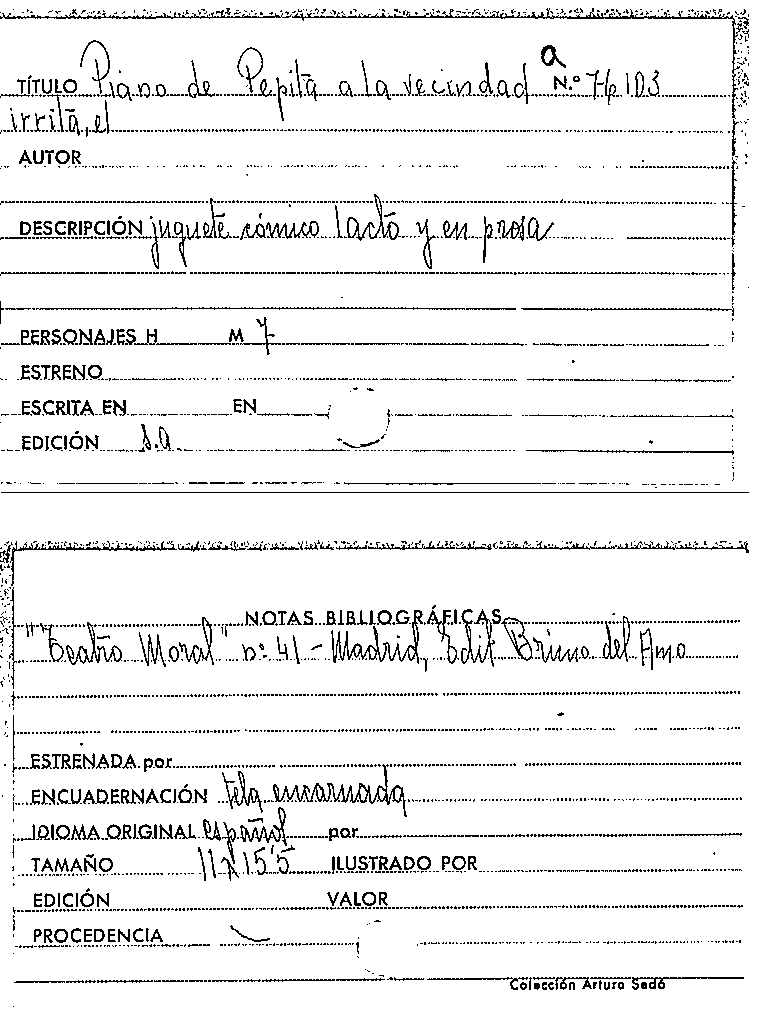 a
TÍTULO Piano de Pepita a la vecindad N.º 76103
irrita, el
AUTOR
DESCRIPCIÓN juguete cómico 1 acto y en prosa
PERSONAJES H M 7
ESTRENO
ESCRITA EN EN
EDICIÓN s.a.
NOTAS BIBLIOGRÁFICAS
"Teatro Moral" nº 41 - Madrid, Edit Bruno del Amo
ESTRENADA por
ENCUADERNACIÓN tela encarnada
IDIOMA ORIGINAL español por
TAMAÑO 11x15'5 ILUSTRADO POR
EDICIÓN VALOR
PROCEDENCIA
Colección Arturo Sedó